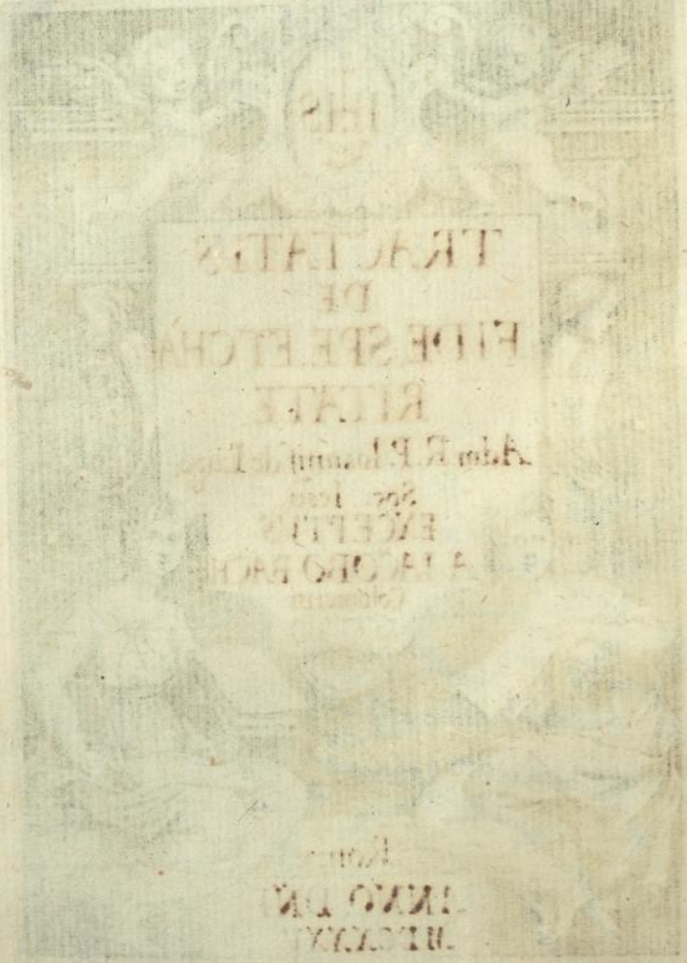 IHS
TRACTATUS
DE
FIDE SPE ET CHA
RITATE
Adm R. P. Ioannis de Lugo
Soc. Iesu
EXCEPTUS
A IACOBO
Romæ
ANNO DNI